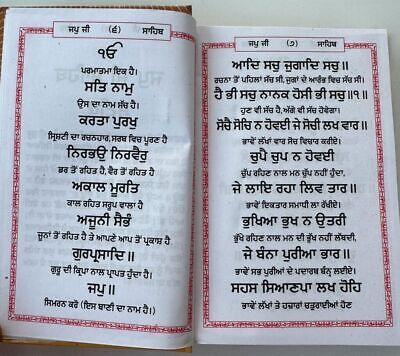 ਜਪੁ ਜੀ (੬) ਸਾਹਿਬ
ੴ
ਪਰਮਾਤਮਾ ਇਕ ਹੈ।
ਸਤਿ ਨਾਮੁ
ਉਸ ਦਾ ਨਾਮ ਸੱਚ ਹੈ।
ਕਰਤਾ ਪੁਰਖੁ
ਸ੍ਰਿਸ਼ਟੀ ਦਾ ਰਚਨਹਾਰ, ਸਰਬ ਵਿਚ ਪੂਰਣ ਹੈ
ਨਿਰਭਉ ਨਿਰਵੈਰੁ
ਡਰ ਤੋਂ ਰਹਿਤ ਹੈ, ਵੈਰ ਤੋਂ ਰਹਿਤ ਹੈ
ਅਕਾਲ ਮੂਰਤਿ
ਕਾਲ ਰਹਿਤ ਸਰੂਪ ਵਾਲਾ ਹੈ
ਅਜੂਨੀ ਸੈਭੰ
ਜੂਨਾਂ ਤੋਂ ਰਹਿਤ ਹੈ ਤੇ ਆਪਣੇ ਆਪ ਤੋਂ ਪ੍ਰਕਾਸ਼ ਹੈ
ਗੁਰਪ੍ਰਸਾਦਿ॥
ਗੁਰੂ ਦੀ ਕ੍ਰਿਪਾ ਨਾਲ ਪ੍ਰਾਪਤ ਹੁੰਦਾ ਹੈ।
ਜਪੁ॥
ਸਿਮਰਨ ਕਰੋ (ਇਸ ਬਾਣੀ ਦਾ ਨਾਮ ਹੈ)।
ਜਪੁ ਜੀ (੭) ਸਾਹਿਬ
ਆਦਿ ਸਚੁ ਜੁਗਾਦਿ ਸਚੁ॥
ਰਚਨਾ ਤੋਂ ਪਹਿਲਾਂ ਸੱਚ ਸੀ, ਜੁਗਾਂ ਦੇ ਆਰੰਭ ਵਿਚ ਸੱਚ ਸੀ।
ਹੈ ਭੀ ਸਚੁ ਨਾਨਕ ਹੋਸੀ ਭੀ ਸਚੁ॥੧॥
ਹੁਣ ਵੀ ਸੱਚ ਹੈ, ਅੱਗੇ ਵੀ ਸੱਚ ਹੋਵੇਗਾ।
ਸੋਚੈ ਸੋਚਿ ਨ ਹੋਵਈ ਜੇ ਸੋਚੀ ਲਖ ਵਾਰ॥
ਭਾਵੇਂ ਲੱਖਾਂ ਵਾਰ ਸੋਚ ਵਿਚਾਰ ਕਰੀਏ।
ਚੁਪੈ ਚੁਪ ਨ ਹੋਵਈ
ਚੁੱਪ ਰਹਿਣ ਨਾਲ ਮਨ ਚੁੱਪ ਨਹੀਂ ਹੁੰਦਾ,
ਜੇ ਲਾਇ ਰਹਾ ਲਿਵ ਤਾਰ॥
ਭਾਵੇਂ ਇਕਤਾਰ ਸਮਾਧੀ ਲਾ ਰੱਖੀਏ।
ਭੁਖਿਆ ਭੁਖ ਨ ਉਤਰੀ
ਭੁੱਖੇ ਰਹਿਣ ਨਾਲ ਮਨ ਦੀ ਭੁੱਖ ਨਹੀਂ ਲਥਦੀ,
ਜੇ ਬੰਨਾ ਪੁਰੀਆ ਭਾਰ॥
ਭਾਵੇਂ ਸਭ ਪੁਰੀਆਂ ਦੇ ਪਦਾਰਥ ਬੰਨ੍ਹ ਲਈਏ।
ਸਹਸ ਸਿਆਣਪਾ ਲਖ ਹੋਹਿ
ਭਾਵੇਂ ਲੱਖਾਂ ਤੇ ਹਜ਼ਾਰਾਂ ਚਤੁਰਾਈਆਂ ਹੋਣ